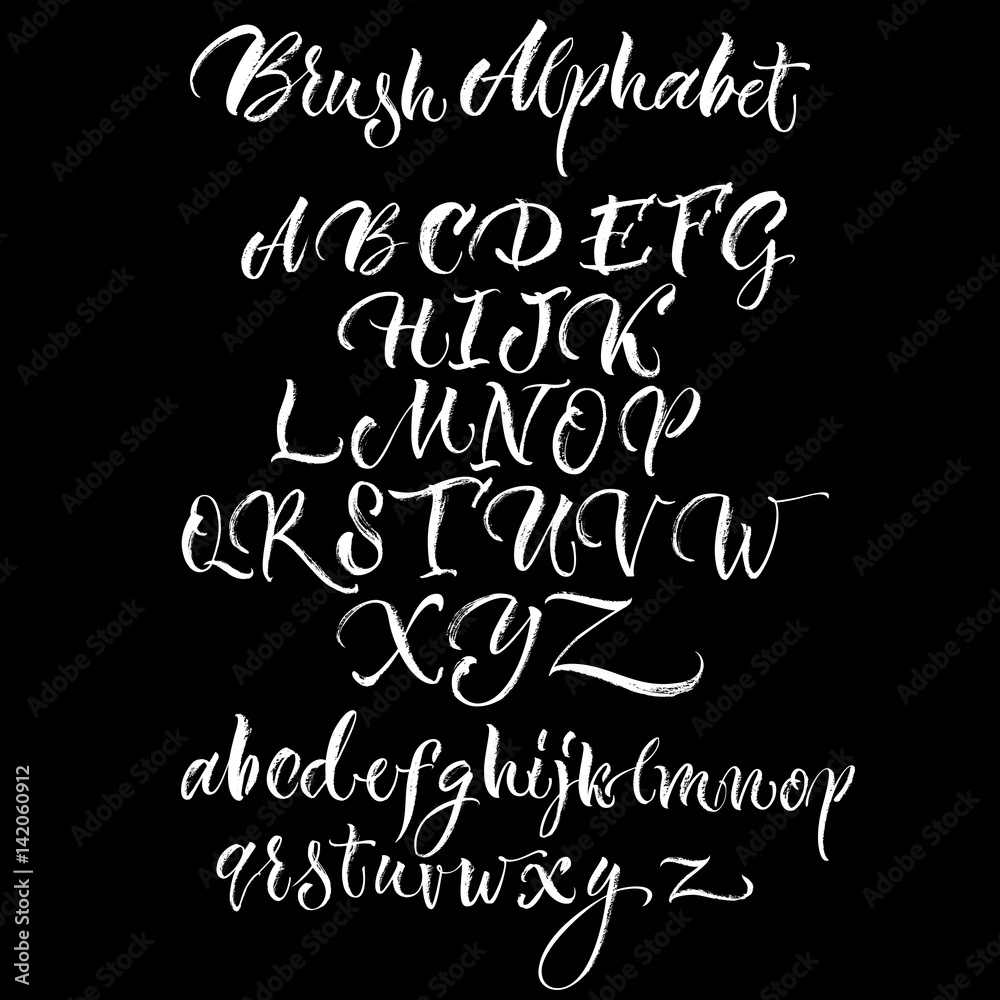 Brush Alphabet
ABCDEFG
HIJK
LMNOP
QRSTUVW
XYZ
abcdefghijklmnop
qrstuvwxyz
Adobe Stock | #142060912